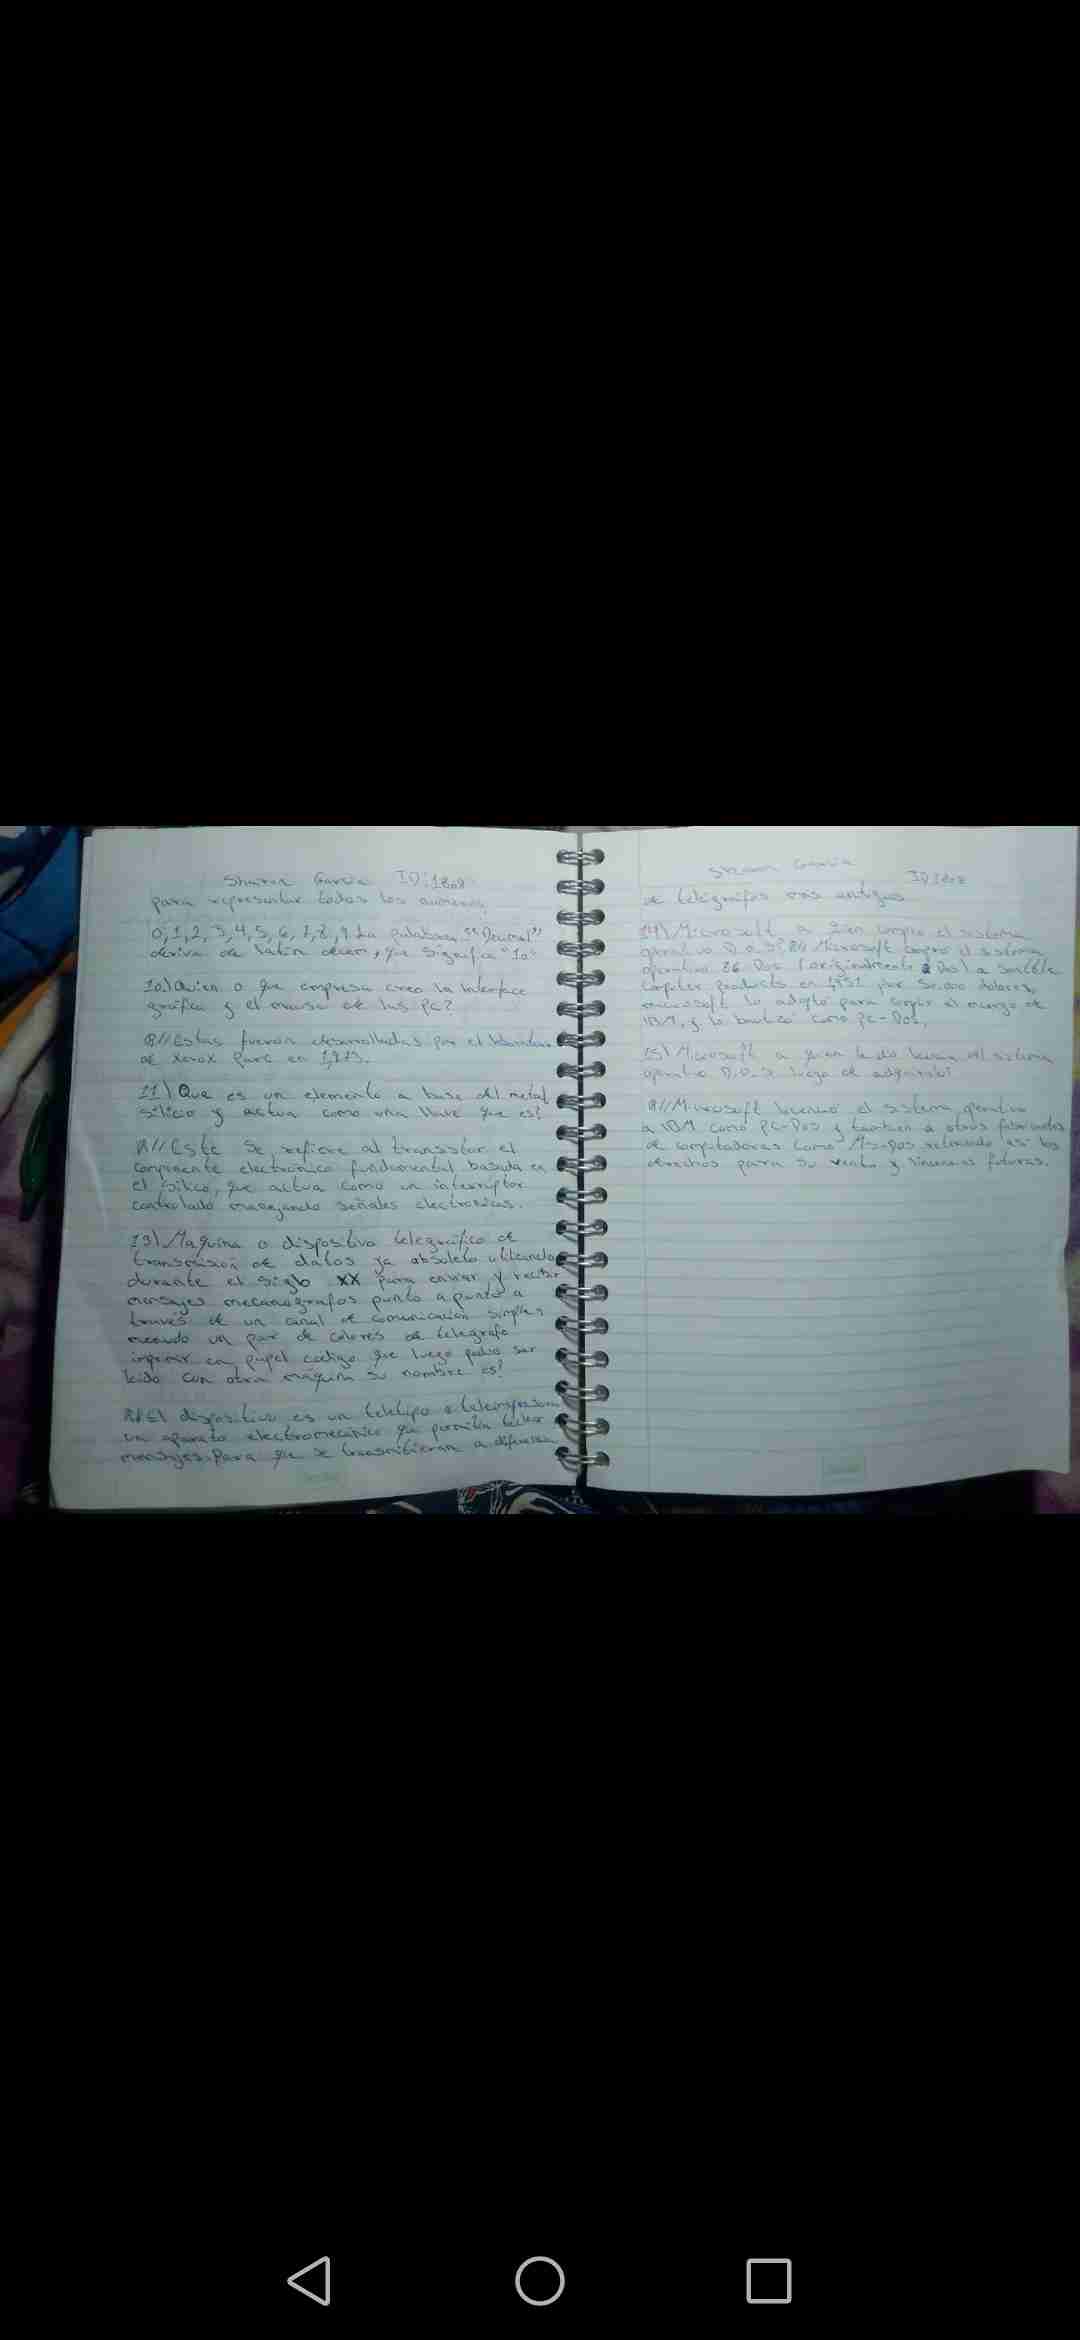 Sharon Garcia ID:1808
para representar todos los numeros,
0,1,2,3,4,5,6,7,8,9. La palabara "Decimal"
deriva de latin decem, que significa "10"
10.) Quien o que empresa creo la Interface
gráfica y el mouse de las PC?
R// Estas fueron desarrolladas por el
de Xerox Parc en 1,973.
11) Que es un elemento a base del metal
silicio y actua como una llave que es?
R// Este se refiere al transistor el
componente electrónico fundamental basada en
el silico, que actua como un interruptor
controlado manejando señales electronicas.
13) Maquina o dispositivo telegráfico de
transmision de datos ya absoleto utilizando
durante el siglo XX para enviar y recibir
mensajes mecanografos punto a punto a
través de un canal de comunicación simples
un par de colores de telegrafo
imprimir en papel codigo que luego podia ser
leido con otra maquina su nombre es?
R// El dispositivo es un teletipo o
un aparato electromecánico que permitia
mensajes. Para que se transmitieran a
Sharon Garcia
ID 1808
de telégrafos más antiguos
14) Microsoft a quien compro el sistema
operativo D.O.S? R// Microsoft compro el sistema
operativo 86 Dos (originalmente Dos) a Seattle
products en 1981 por 50.000 dolares,
microsoft lo adoptó para el de
IBM, y lo bautizó como PC-Dos.
15) Microsoft a quien le dio del sistema
operativo D.O.S luego de adquirirlo?
R// Microsoft el sistema operativo
a IBM como PC-Dos y tambien a otros fabricantes
de computadoras como Ms-Dos así los
derechos para su venta y futuras.